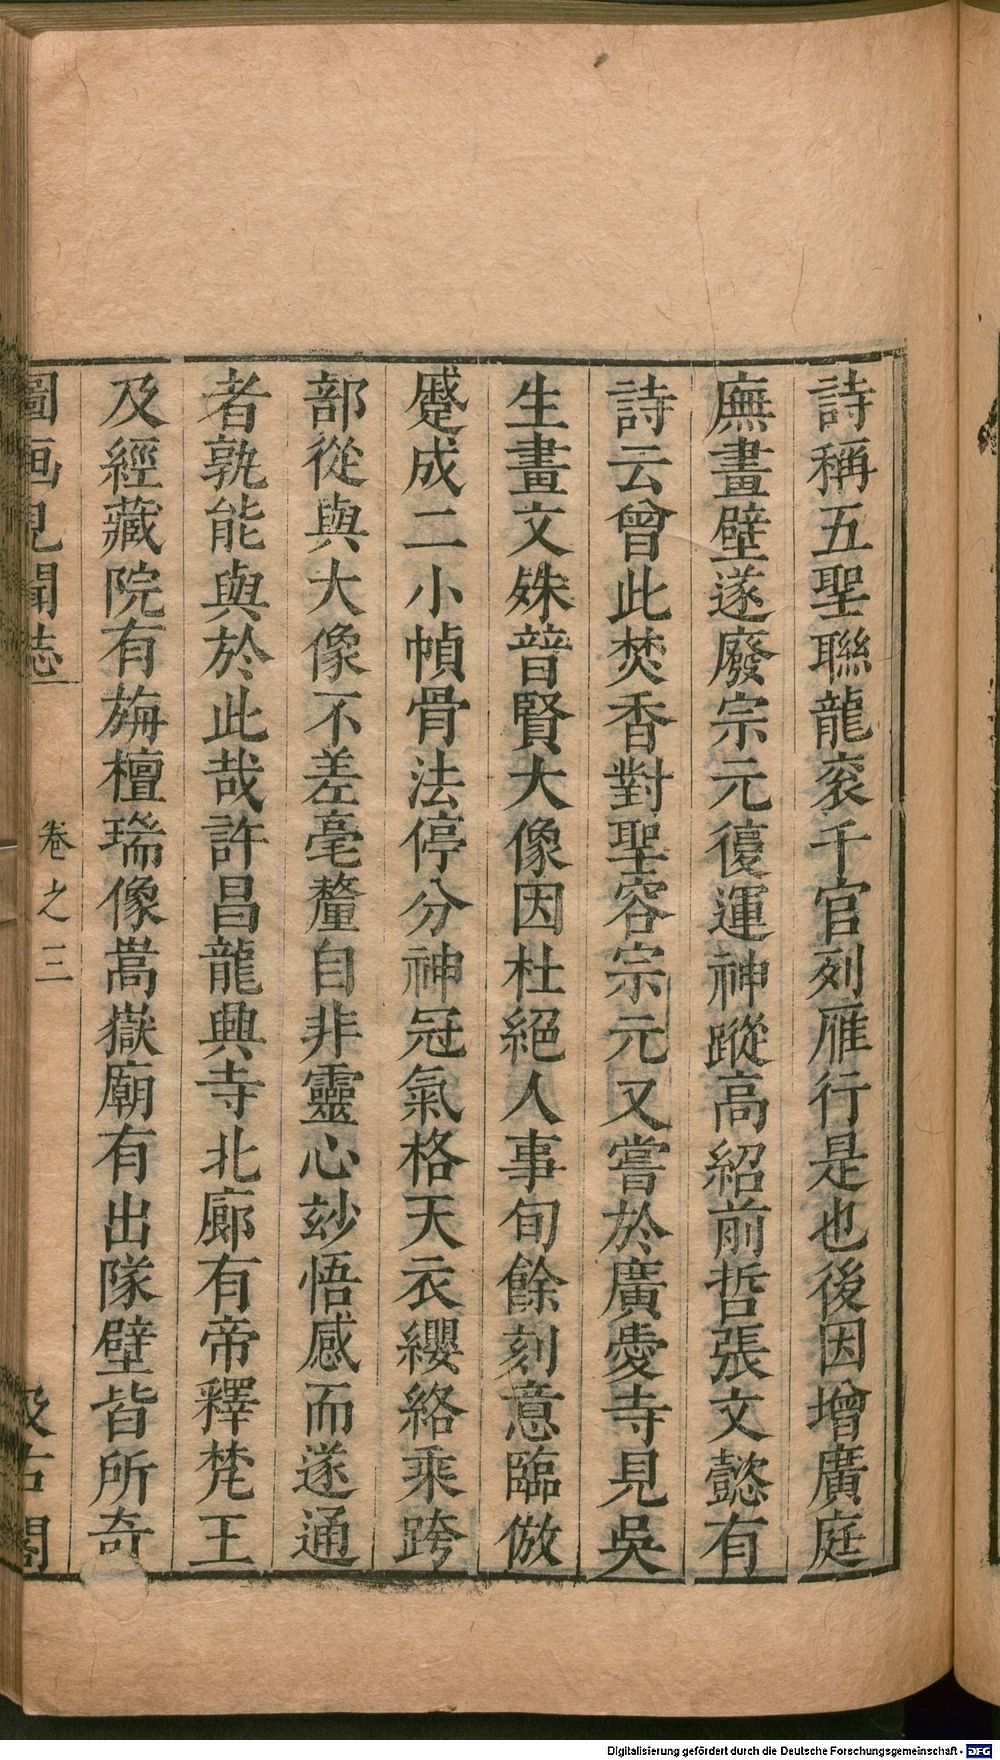 詩稱五聖聯龍衮千官列雁行是也後因增廣庭
廡畫壁遂廢宗元復運神蹤高紹前哲張文懿有
詩云曾此焚香對聖容宗元又嘗於廣愛寺見吳
生畫文殊普賢大像因杜絕人事旬餘刻意臨倣
蹙成二小幀骨法停分神冠氣格天衣纓絡乘跨
部從與大像不差毫釐自非靈心玅悟感而遂通
者孰能與於此哉許昌龍興寺北廊有帝釋梵王
及經藏院有旃檀瑞像嵩嶽廟有出隊壁皆所奇
圖画見聞誌 卷之三 汲古閣
Digitalisierung gefördert durch die Deutsche Forschungsgemeinschaft - DFG